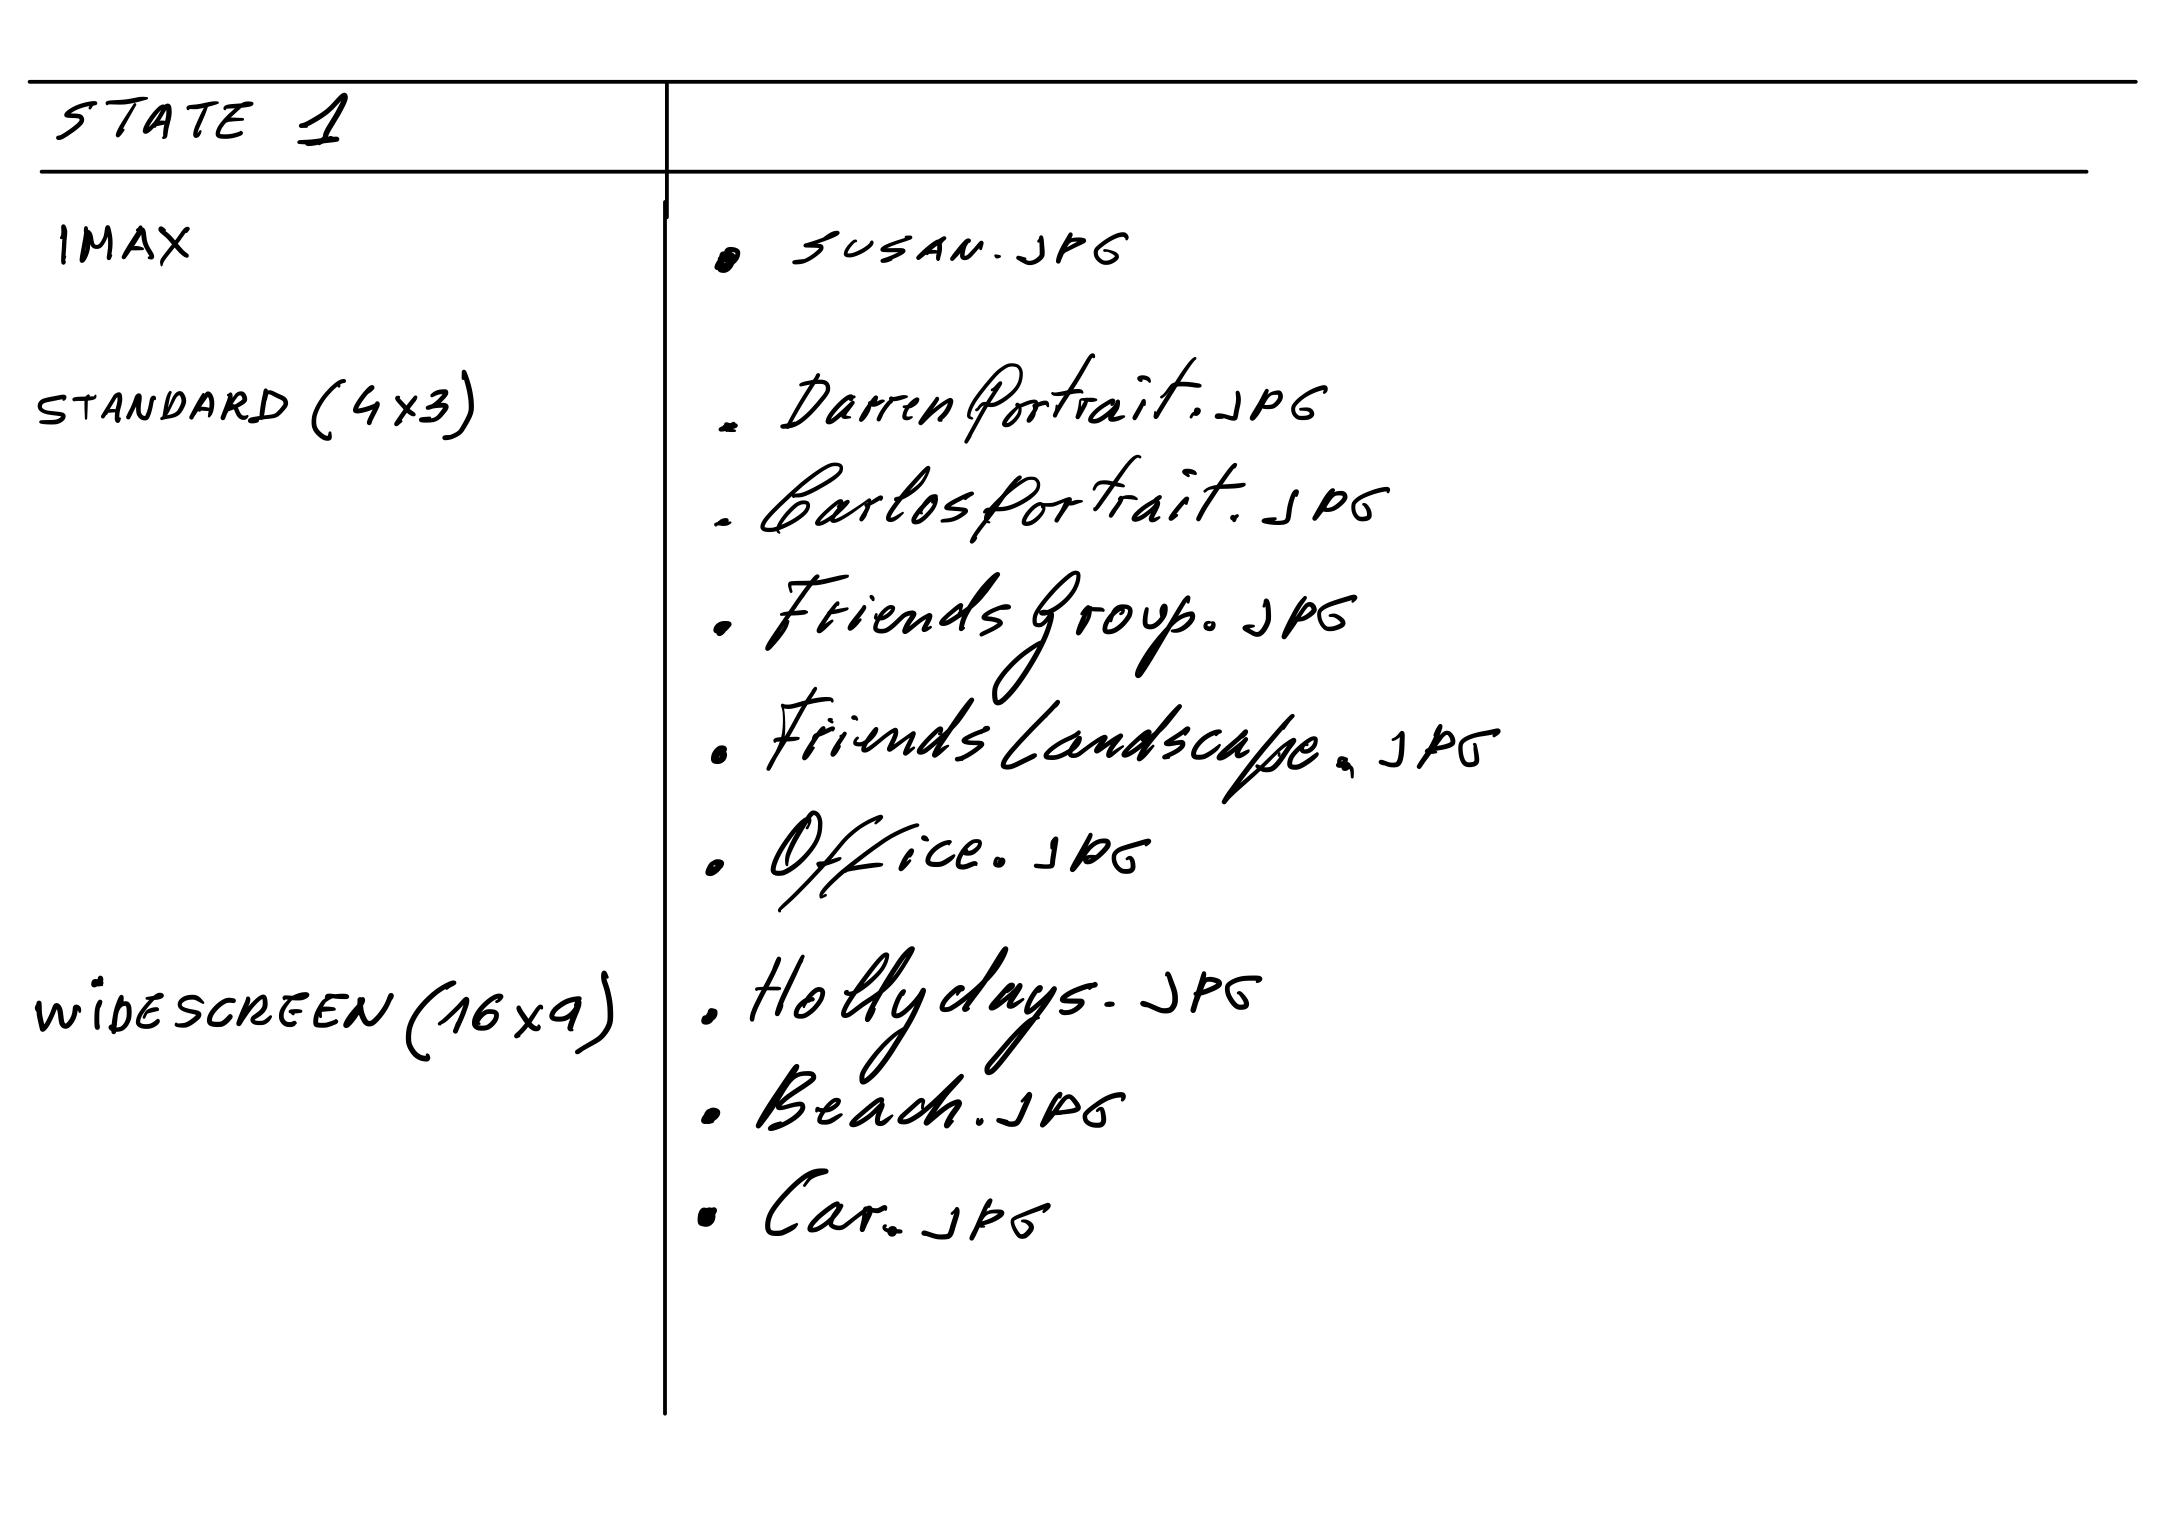 STATE 1
IMAX
SUSAN.JPG
STANDARD (4x3)
DarrenPortrait.JPG
CarlosPortrait.JPG
FriendsGroup.JPG
FriendsLandscape.JPG
Office.JPG
WIDESCREEN (16x9)
Hollydays.JPG
Beach.JPG
Car.JPG